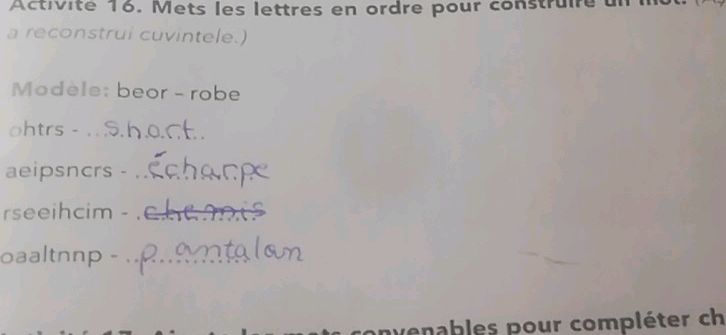 Activité 16. Mets les lettres en ordre pour construire un mot.
a reconstrui cuvintele.)
Modèle: beor - robe
ohtrs - short
aeipsncrs - écharpe
rseeihcim - chemis
oaaltnnp - pantalan
mots convenables pour compléter ch